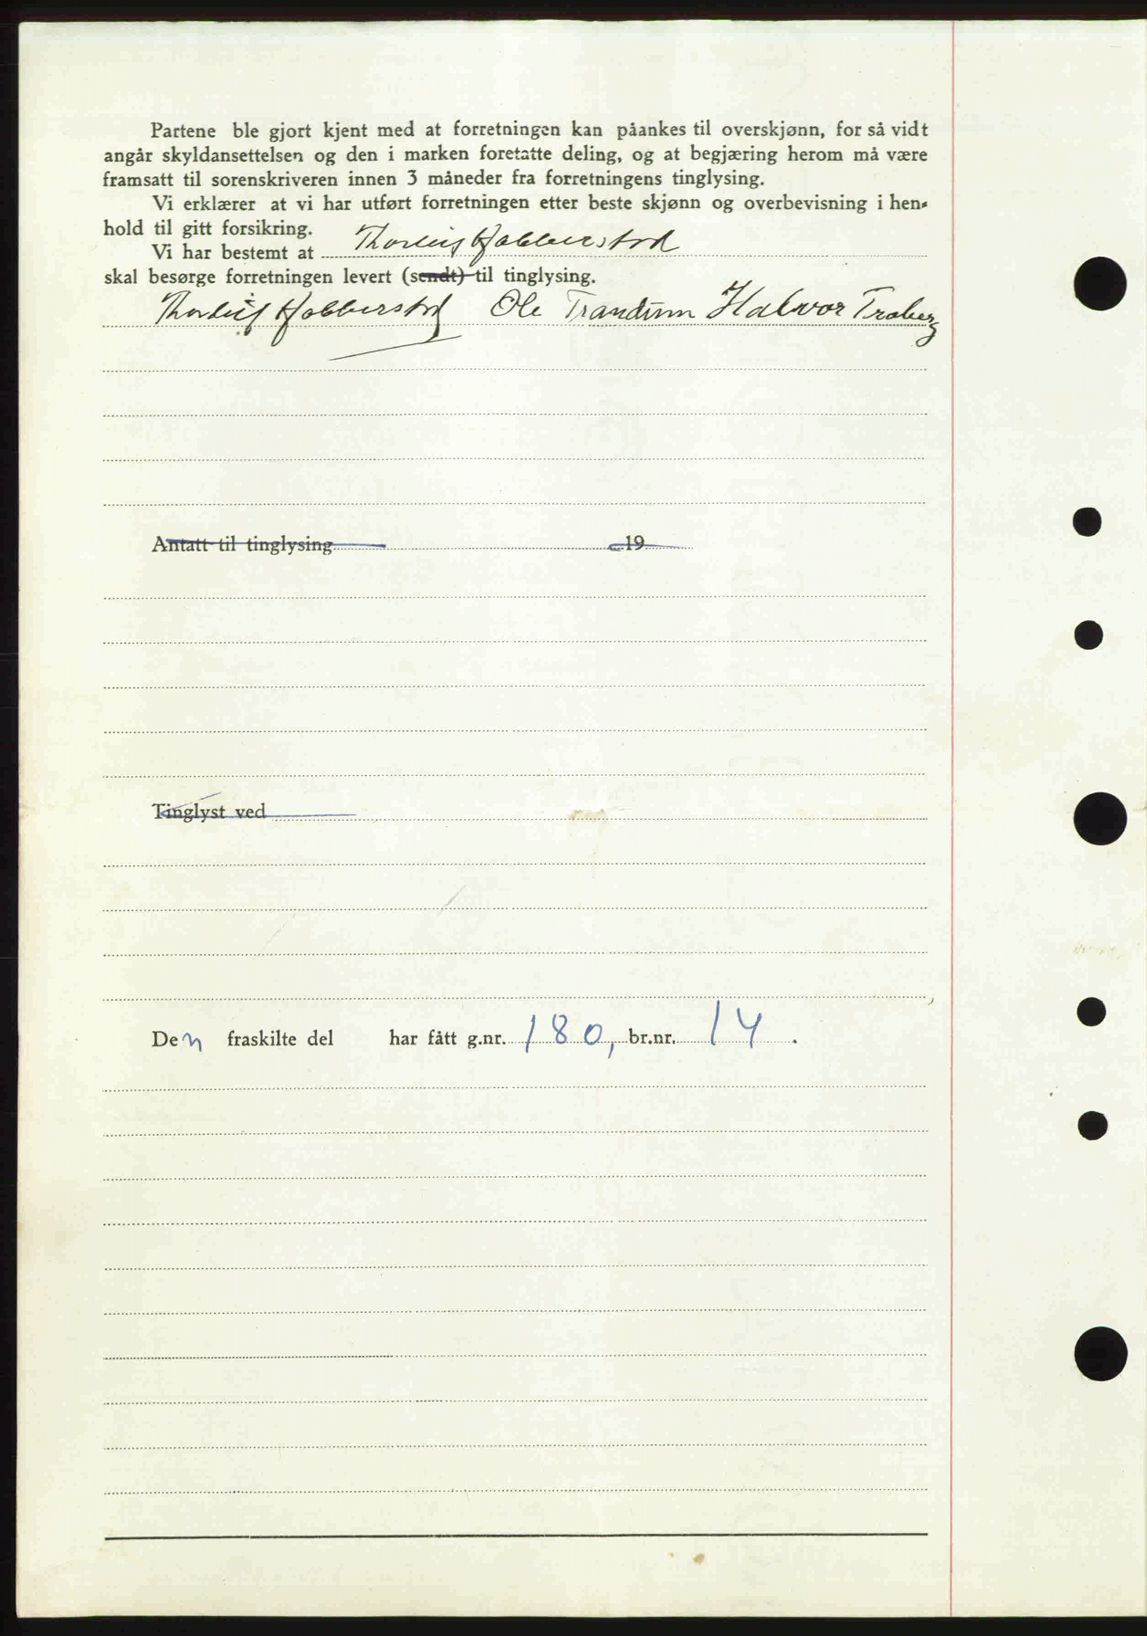 Partene ble gjort kjent med at forretningen kan påankes til overskjønn, for så vidt
angår skyldansettelsen og den i marken foretatte deling, og at begjæring herom må være
framsatt til sorenskriveren innen 3 måneder fra forretningens tinglysing.
Vi erklærer at vi har utført forretningen etter beste skjønn og overbevisning i hen-
hold til gitt forsikring.
Vi har bestemt at Thorleif Habberstad
skal besørge forretningen levert (sendt) til tinglysing.
Thorleif Habberstad Ole Trandum Halvor Traberg
Antatt til tinglysing 19
Tinglyst ved
Den fraskilte del har fått g.nr. 180, br.nr. 14.